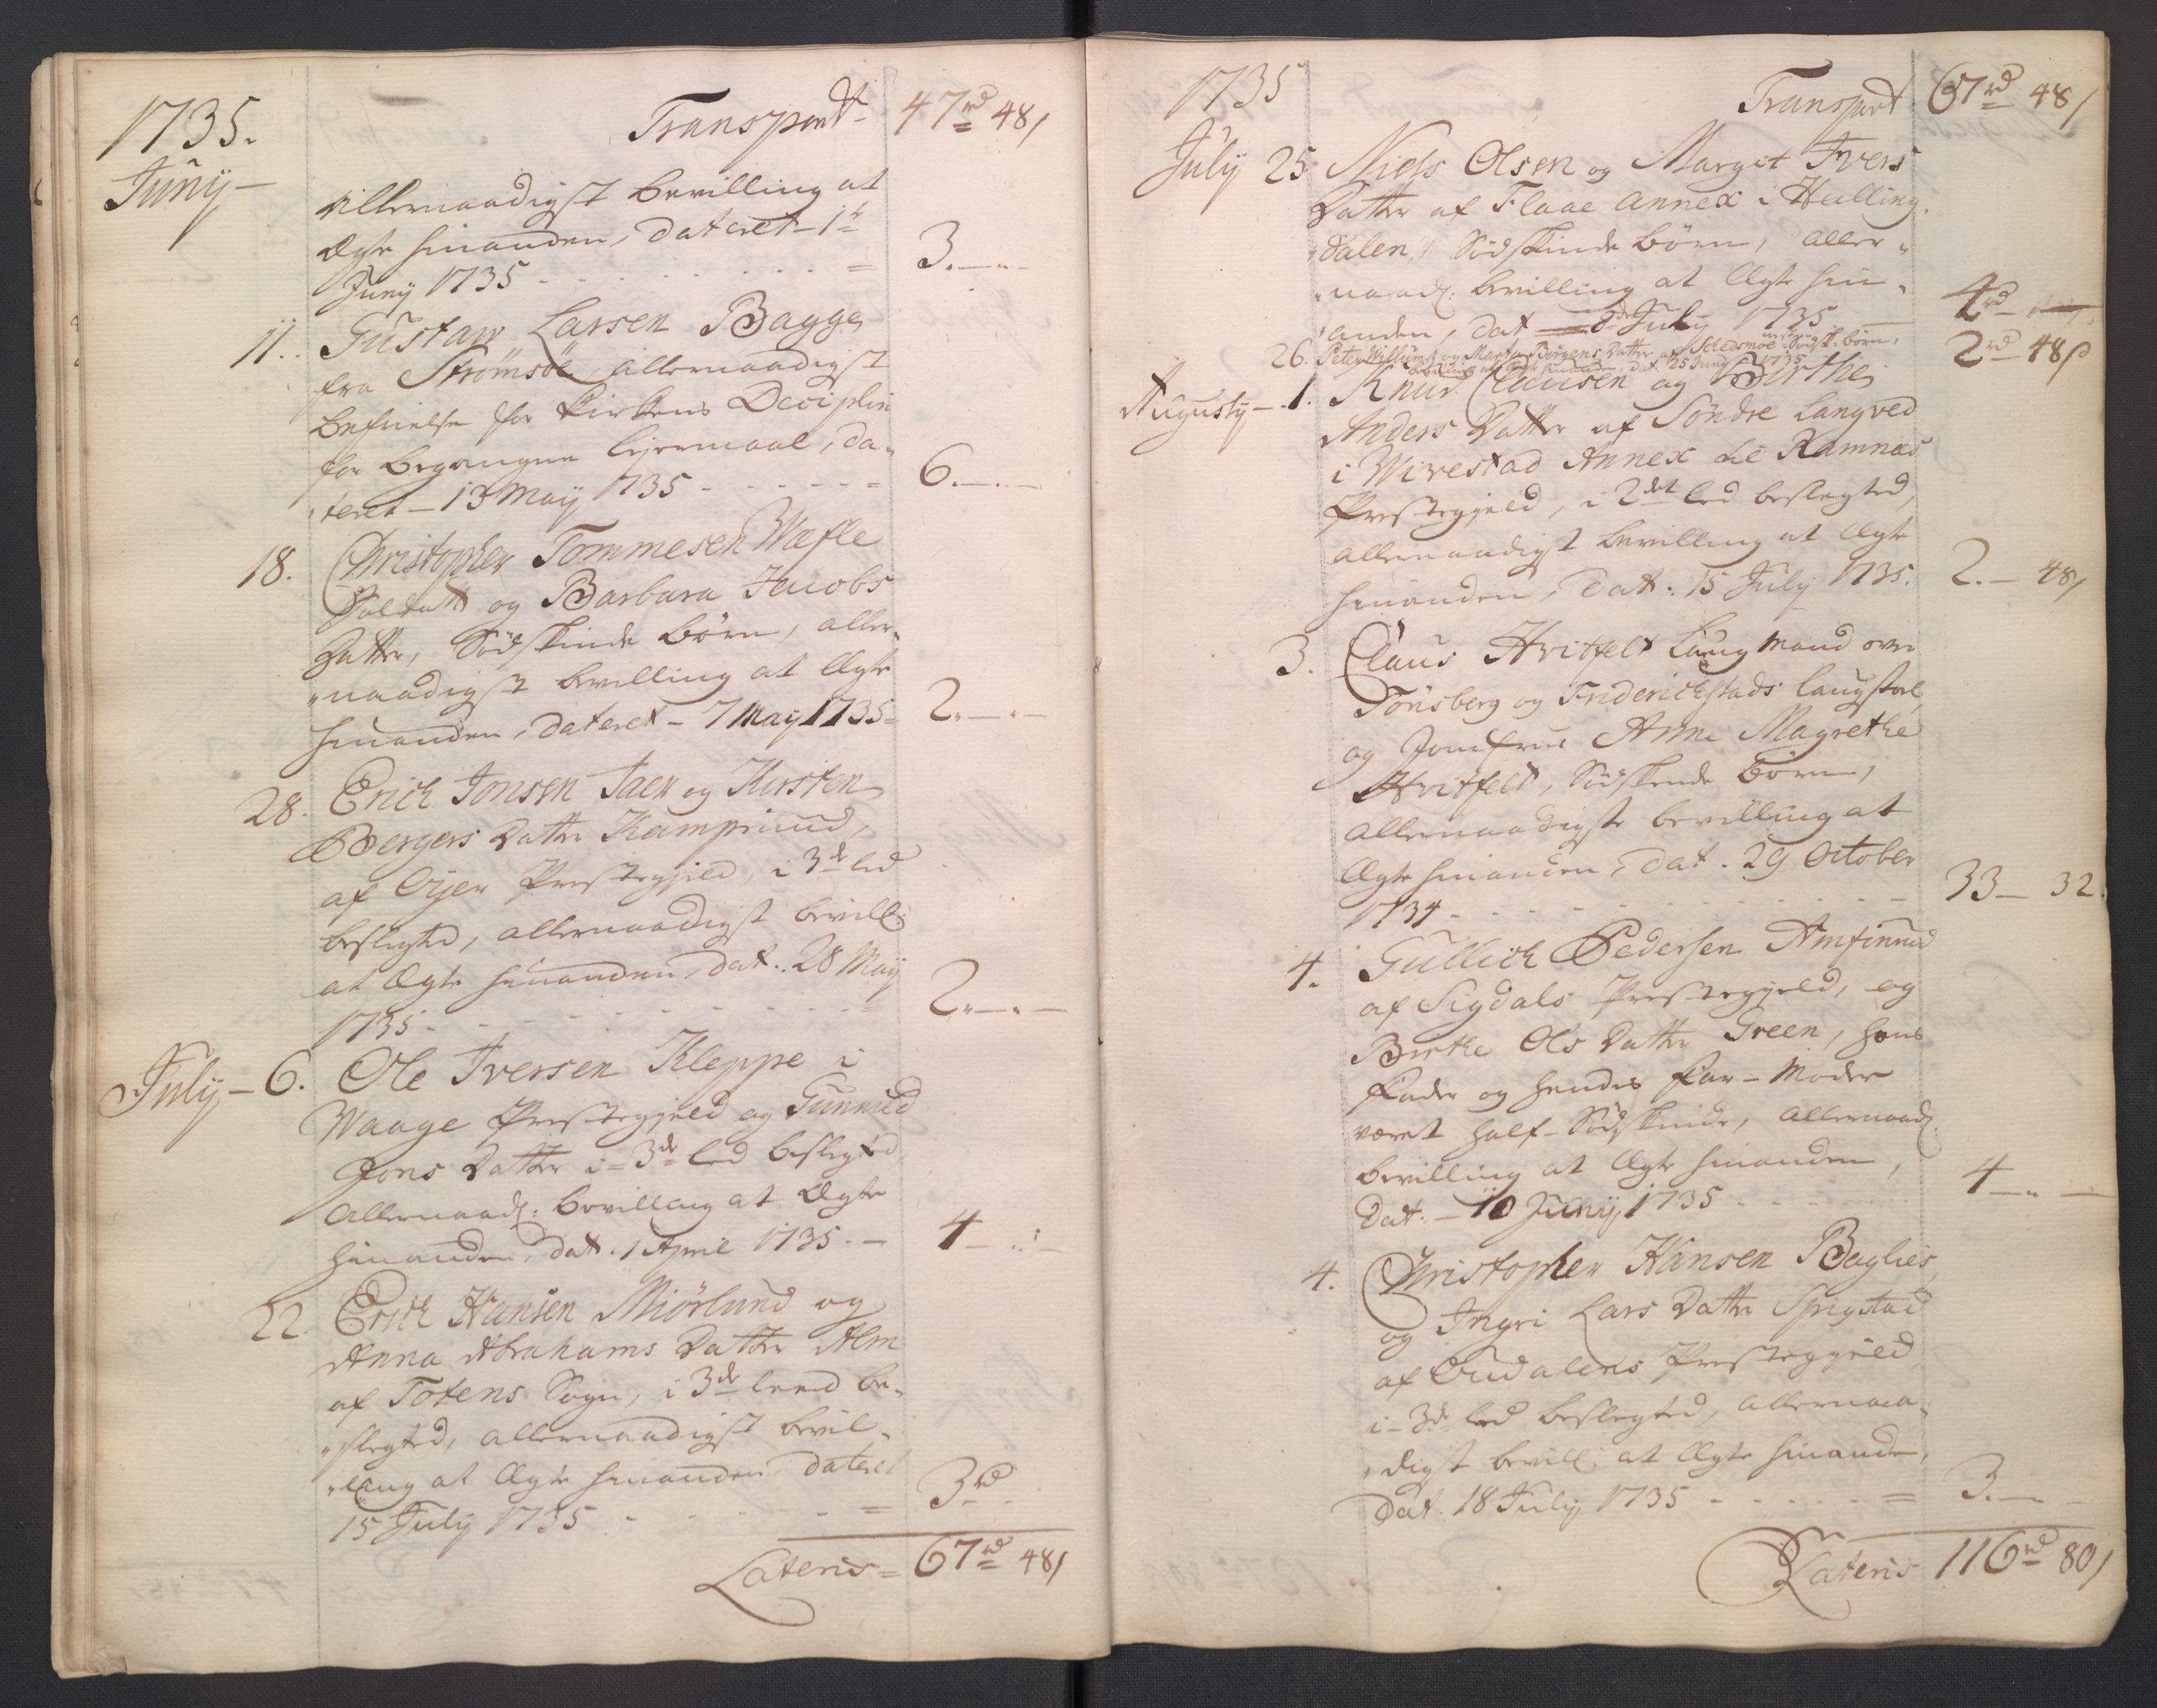 1735.
Transport
47 rd 48 s
Junij
Allernaadigst bevilling at
Ægte hinanden, dateret 1te
Junij 1735 - - - - - - =
3. — " —
11.. Gustaw Larsen Bagge
fra Strømsöe, allernaadigst
befrielse for Kirkens Deciplin
for begangne leyermaal, da-
teret - 13 Maij 1735 - - - - =
6. — . —
18. Christopher Tommesen Wæfle
Soldatt og Barbara Jacobs
Datter, Södskinde børn, aller-
naadigst bevilling at Ægte
hinanden, dateret - 7 Maij 1735 =
2. — . —
28. Erich Jonsen Jaer og Kirsten
Bergers Datter Kamprud,
af Öyer Præstegjeld, i 3de led
beslegted, allernaadigst bevill:
at Ægte hinanden, dat. 28 Maij
1735 - - - - - - =
2. — . —
July — 6. Ole Iversen Kleppe i
Waage Præstegjeld og Gunnild
Jons Datter i 3de led beslegted,
Allernaad: bevilling at Ægte
hinanden, dat. 1 April 1735. —
4 — . —
22. Erich Hansen Miörlund og
Anna Abrahams Datter Alm
af Totens Sogn, i 3de leed be-
slegted, allernaadigst bevil-
ling at Ægte hinanden, dateret
15 July 1735 - - - - =
3 rd
Lateris = 67 rd 48 s
1735
Transport
67 rd 48 s
July 25 Niels Olsen og Margit Ivers
Datter af Flaae Annex i Halling-
dalen, Södskinde børn, aller-
naad: bevilling at Ægte hin-
anden, dat 8de July 1735 —
4 rd
26. Peter Willumsen og Marta Börgers Datter af Schedsmoe Södsk. børn,
bevilling at Ægte hinanden, dat. 25 Juny 1735
2 rd 48 s
Augustij — 1. Knud Clausen og Birthe
Anders Datter af Söndre Langved
i Wivestad Annex til Ramnæs
Præstegjeld, i 2det led beslegted,
allernaadigst bevilling at Ægte
hinanden, dat: 15 July 1735.
2. — 48 s
3. Claus Hvitfelt Laugmand over
Tønsberg og Friderichstads laugstol,
og Jomfrue Anne Magrethe
Hvitfeldt, Södskende børn,
allernaadigste bevilling at
Ægte hinanden, dat. 29 October
1734 - - - - - -
33 — 32.
4. Gullich Pedersen Amfinrud
af Sigdals Præstegjeld, og
Birthe Ols Datter Green, hans
Fader og hendes Far-Moder
været half-Södskinde, allernaad:
bevilling at Ægte hinanden,
dat. — 10 Junij 1735 - - - -
4 — " —
4. Christopher Hansen Baglies
og Ingri Lars Datter Sprigstad
af Oudalens Præstegjeld
i 3de led beslegted, allernaa-
digst bevill: at Ægte hinanden,
dat. 18 July 1735 - - - - =
3. — —
Lateris 116 rd 80 s